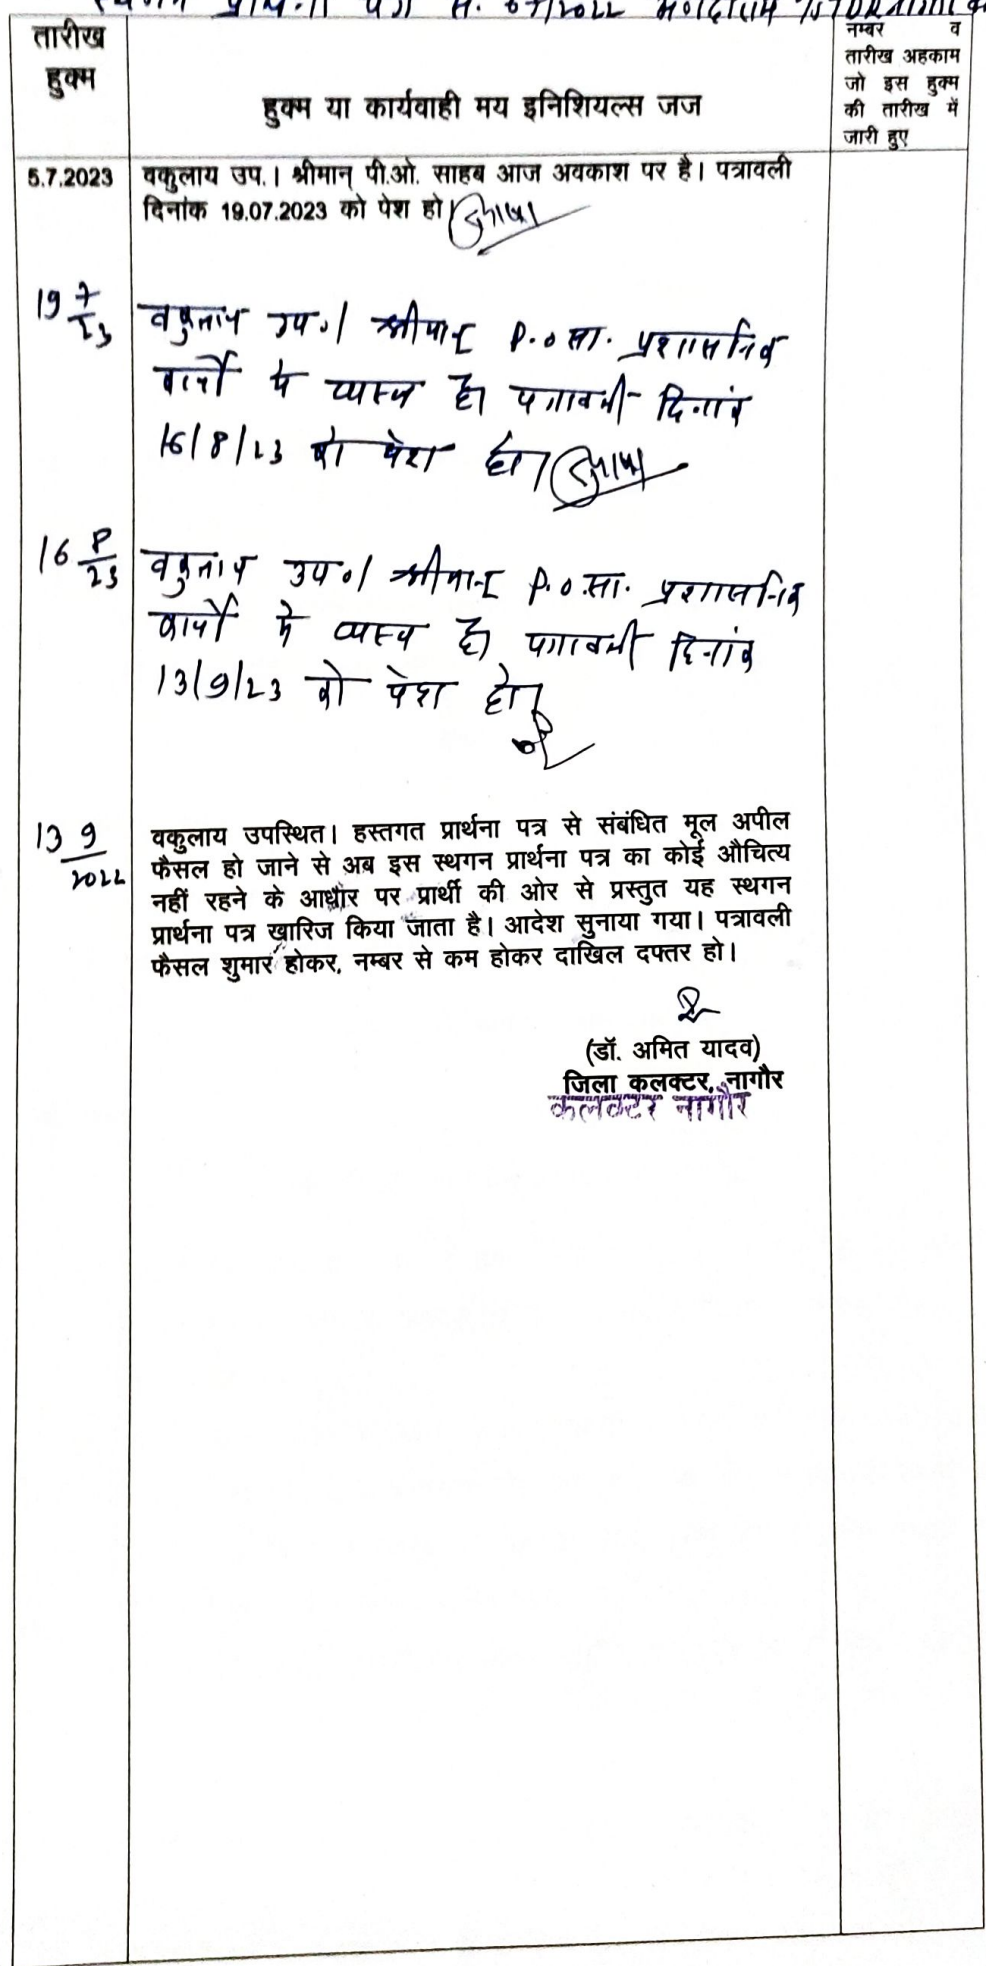 स्थगन प्रार्थना पत्र सं. 07/2022
तारीख
हुक्म
हुक्म या कार्यवाही मय इनिशियल्स जज
नम्बर व
तारीख अहकाम
जो इस हुक्म
की तारीख में
जारी हुए
5.7.2023 वकुलाय उप.। श्रीमान् पी.ओ. साहब आज अवकाश पर है। पत्रावली
दिनांक 19.07.2023 को पेश हो।
19 7/23 वकुलाय उप०। श्रीमान् P.o सा. प्रशासनिक
कार्यो मे व्यस्त है। पत्रावली दिनांक
16/8/23 को पेश हो।
16 8/23 वकुलाय उप०। श्रीमान् P.o.सा. प्रशासनिक
कार्यो मे व्यस्त है। पत्रावली दिनांक
13/9/23 को पेश हो।
13 9/2022 वकुलाय उपस्थित। हस्तगत प्रार्थना पत्र से संबंधित मूल अपील
फैसल हो जाने से अब इस स्थगन प्रार्थना पत्र का कोई औचित्य
नहीं रहने के आधार पर प्रार्थी की ओर से प्रस्तुत यह स्थगन
प्रार्थना पत्र खारिज किया जाता है। आदेश सुनाया गया। पत्रावली
फैसल शुमार होकर, नम्बर से कम होकर दाखिल दफ्तर हो।
(डॉ. अमित यादव)
जिला कलक्टर, नागौर
कलक्टर नागौर